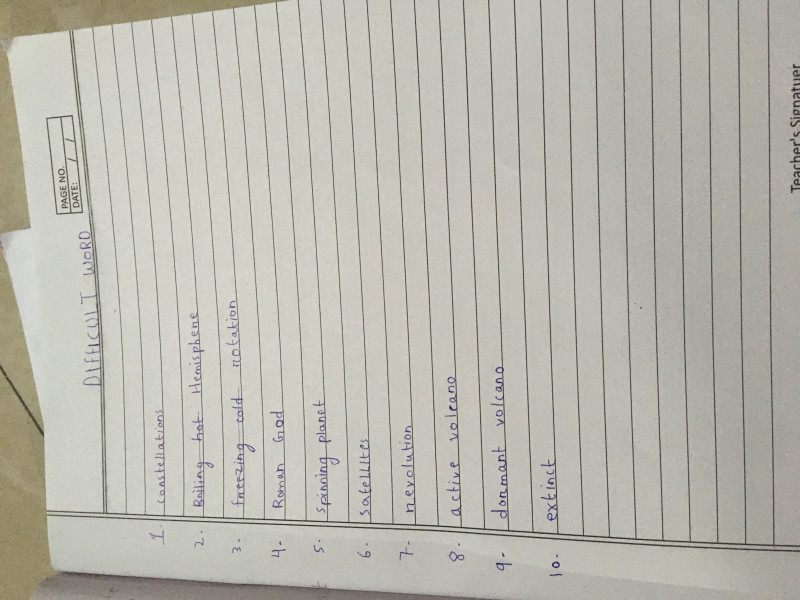 PAGE NO.
DATE: / /
DIFFICULT WORD
1. constellations
2. Boiling hot Hemisphere
3. freezing cold rotation
4. Roman God
5. spinning planet
6. satellites
7. revolution
8. active volcano
9. dormant volcano
10. extinct
Teacher's Signatuer